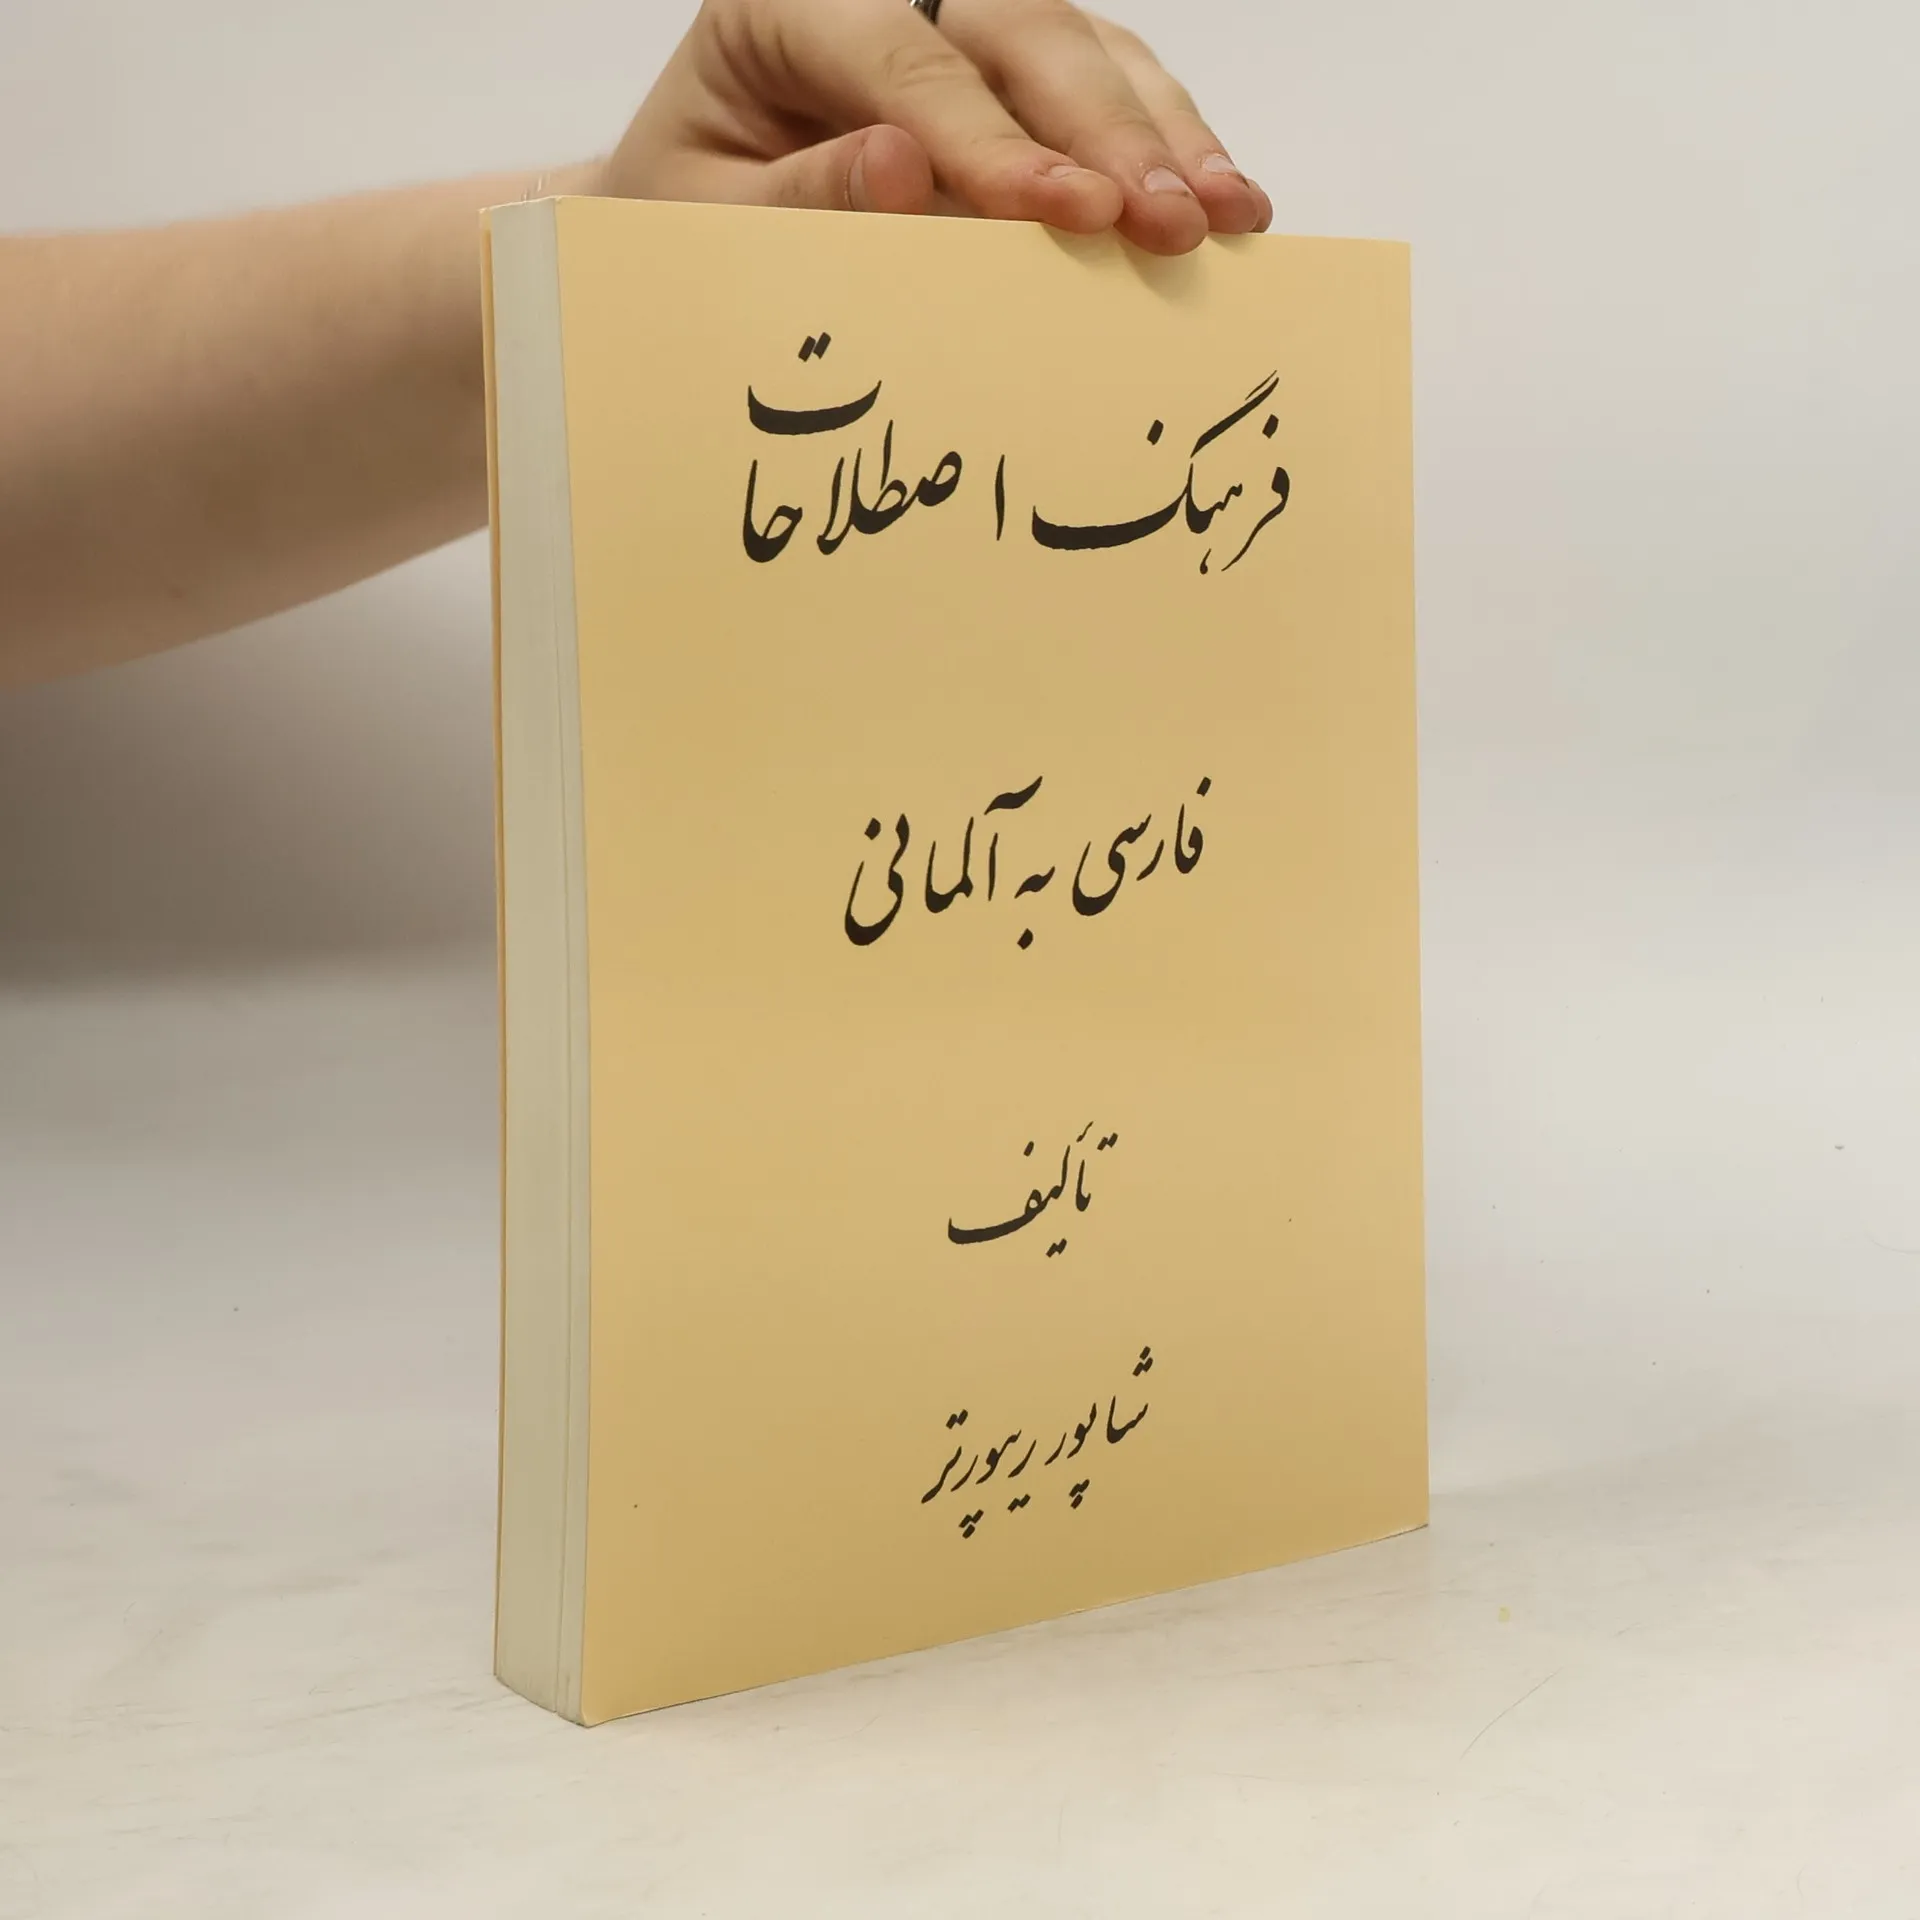 فرهنگ اصطلاحات
فارسی به آلمانی
تألیف
شاپور ریپورتر